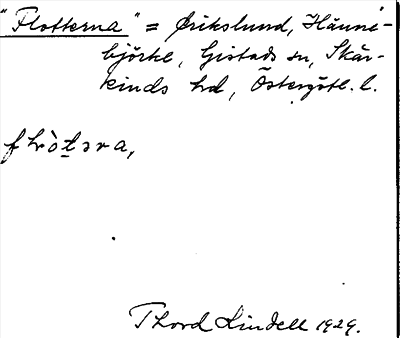 "Flotterna" = Erikslund, Hänni-
björke, Gistads sn, Skär-
kinds hd, Östergötl. l.
Thord Lindell 1929.